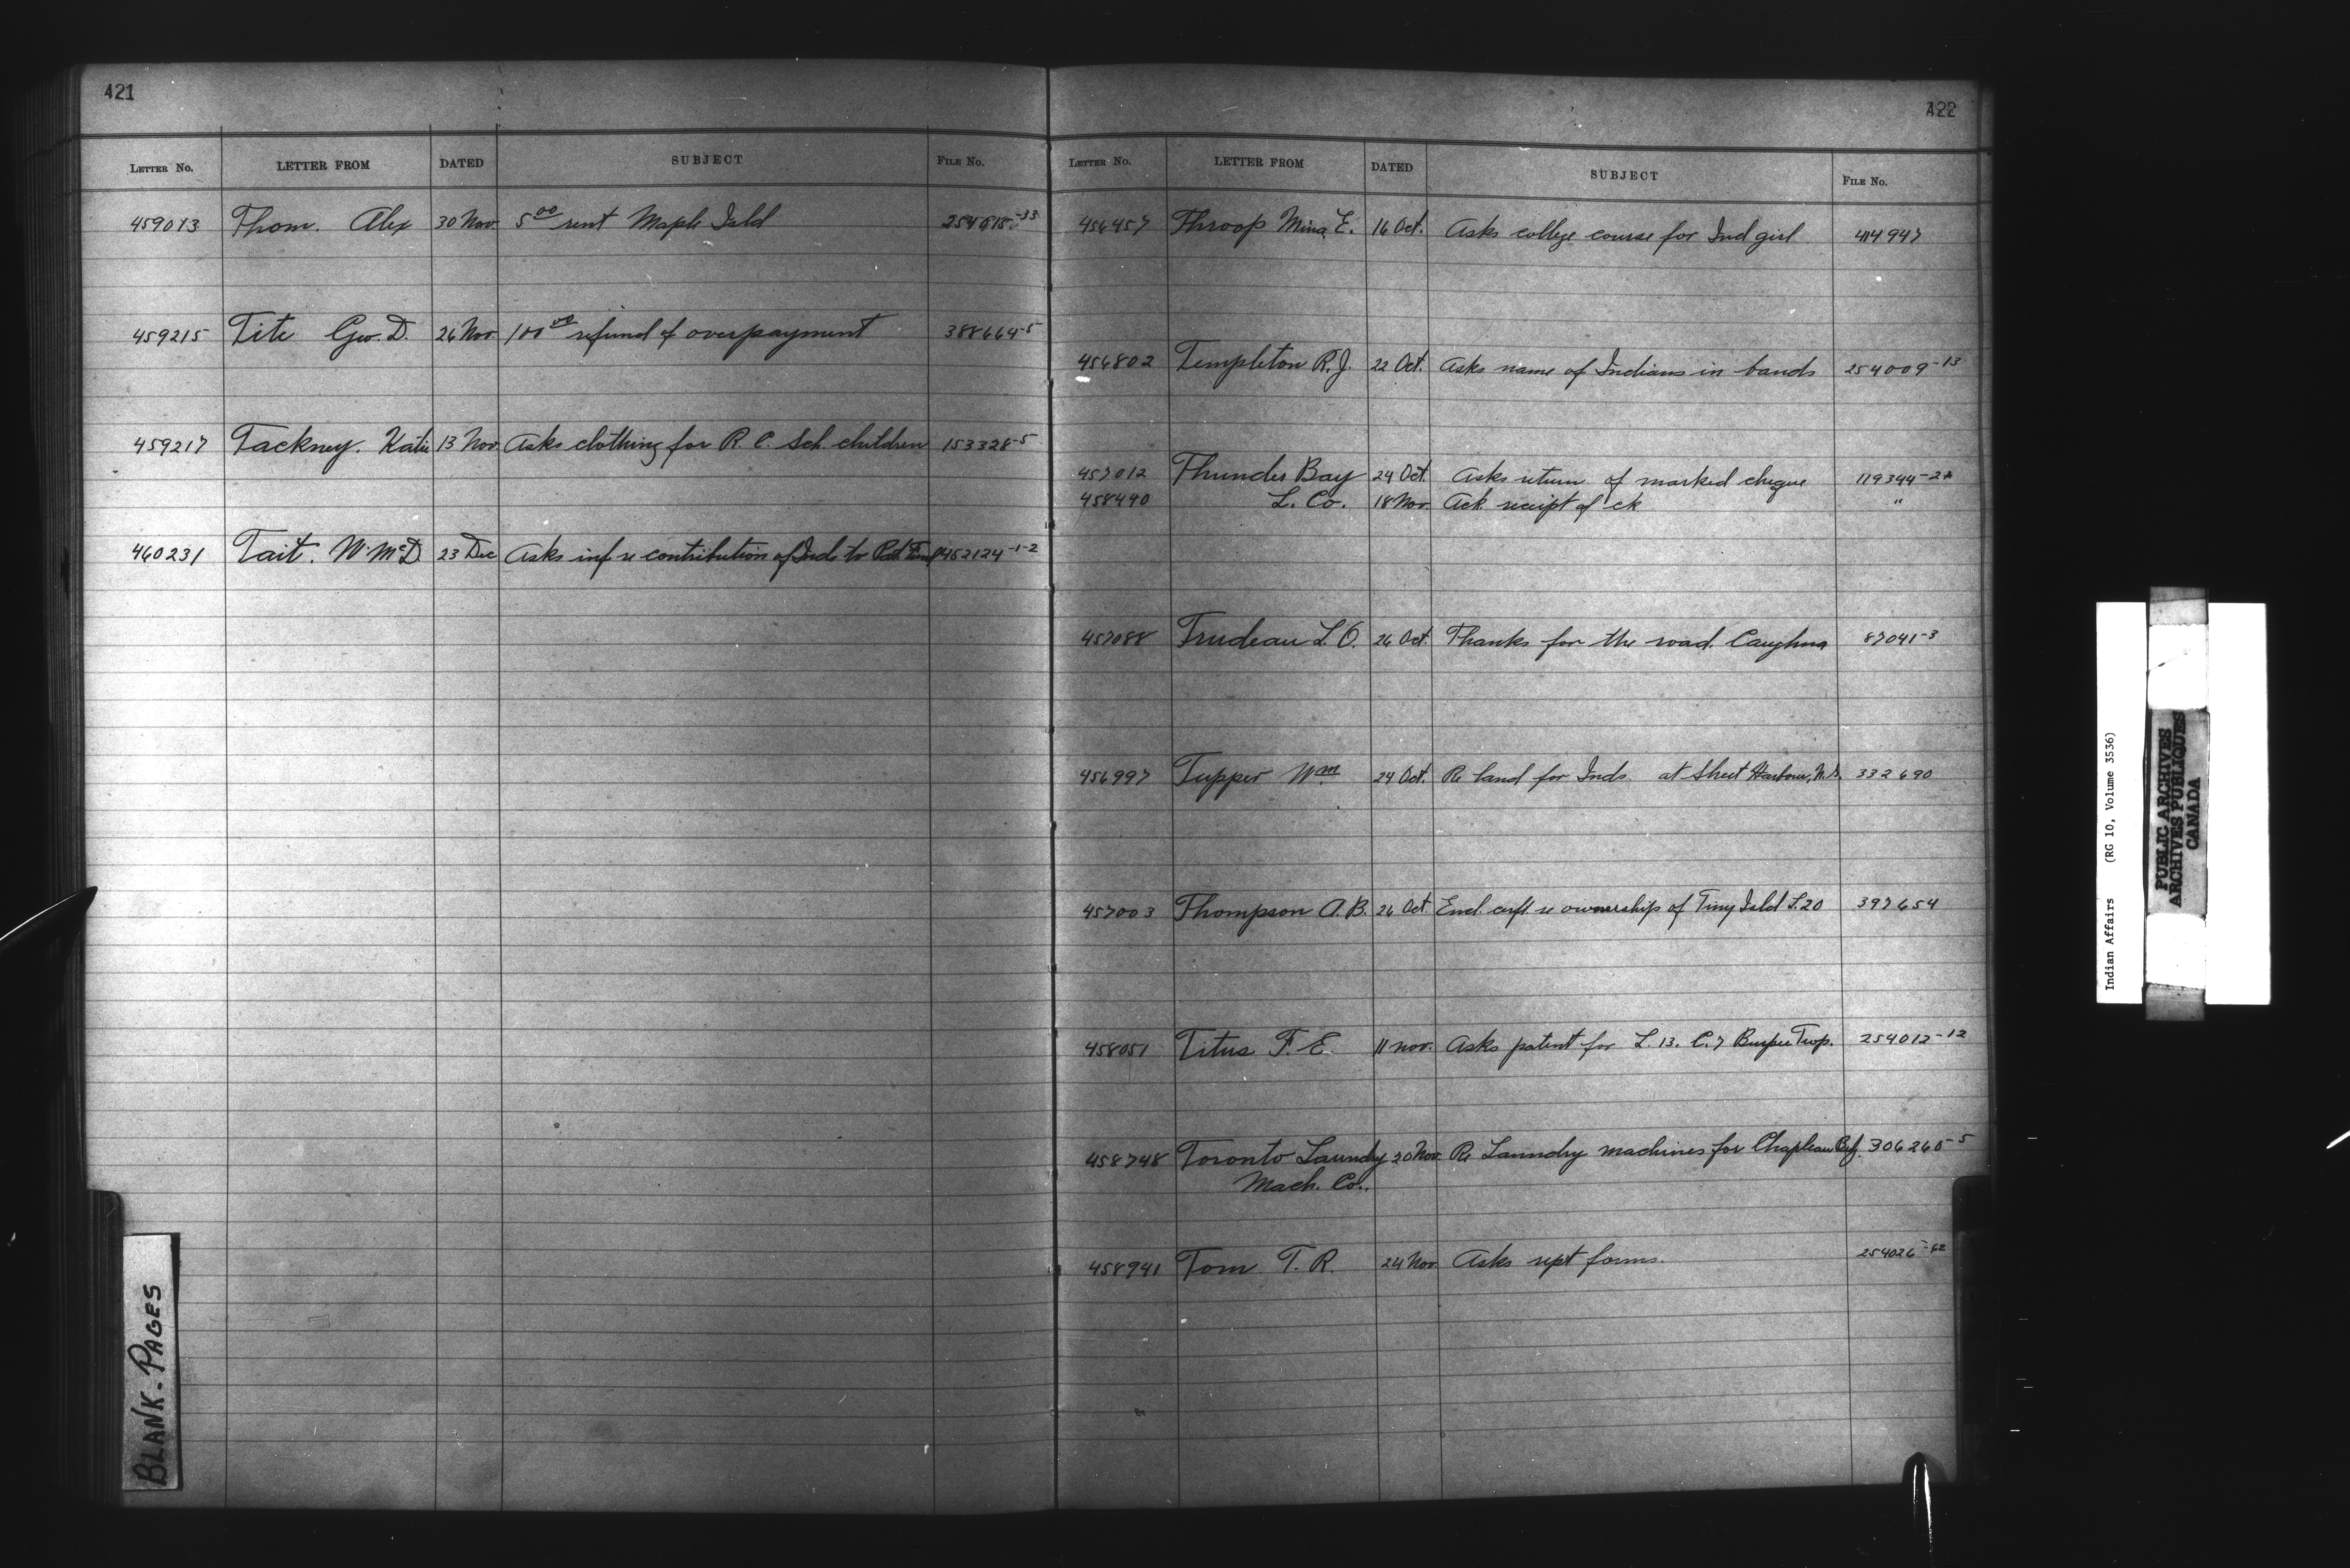 421
LETTER No. LETTER FROM DATED SUBJECT FILE No.
459013 Thom. Alex 30 Nov. 5.00 rent Maple Isld
459215 Tite Geo. D. 26 Nov. 100.00 refund of overpayment 388664-5
459217 Tackney. Katie 13 Nov. Asks clothing for R. C. Sch. children 153328-5
460231 Tait. W. McD 23 Dec Asks inf re contribution of Inds to Pat. Fund 452124-1-2
BLANK-PAGES
422
LETTER No. LETTER FROM DATED SUBJECT FILE No.
456457 Throop Mina E. 16 Oct. Asks college course for Ind girl 414947
456802 Templeton R. J. 22 Oct. Asks name of Indians in bands 254009-13
457012 Thunder Bay 24 Oct. Asks return of marked cheque
458490 L. Co. 18 Nov. Ack. receipt of ck "
457088 Trudeau L. O. 26 Oct. Thanks for the road. Caughna 87041-3
456997 Tupper Wm. 24 Oct. Re land for Inds at Sheet Harbour, N.S. 332690
457003 Thompson A. B. 26 Oct Encl. certf. re ownership of Tiny Isld L.20 397654
458051 Titus F. E. 11 nov. Asks patent for L. 13. C. 7 Burpee Twp. 254012-12
458748 Toronto Laundry 20 Nov Re Laundry machines for Chapleau 306260-5
Mach. Co.
458941 Tom T. R. 24 Nov Asks rept forms. 254026-62
Indian Affairs (RG 10, Volume 3536)
PUBLIC ARCHIVES
ARCHIVES PUBLIQUES
CANADA